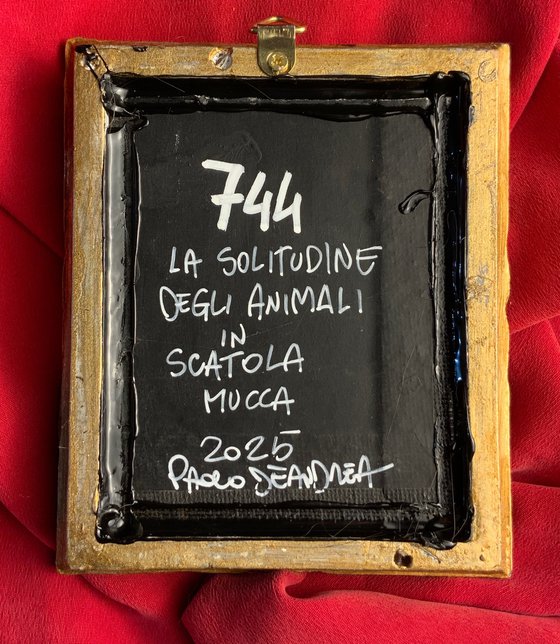 744
LA SOLITUDINE
DEGLI ANIMALI
IN
SCATOLA
MUCCA
2025
PAOLO DEANDREA